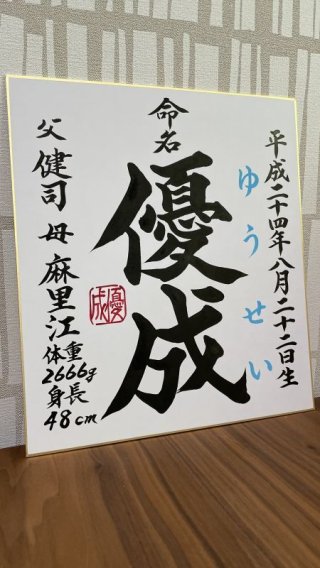 命名
平成二十四年八月二十二日生
ゆうせい
優成
優成
父 健司 母 麻里江
体重
2666g
身長
48cm